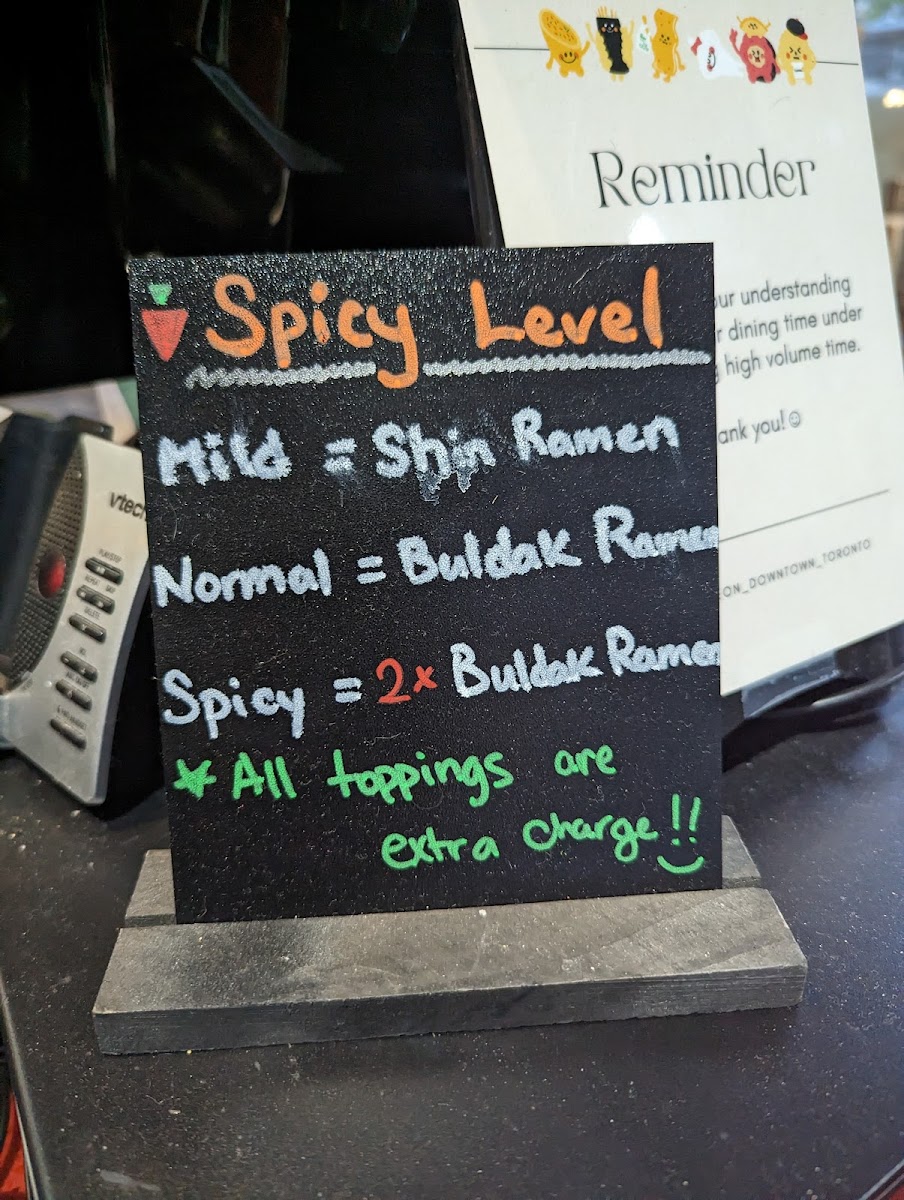 Spicy Level
Mild = Shin Ramen
Normal = Buldak Ramen
Spicy = 2x Buldak Ramen
* All toppings are
extra charge!!
Reminder
understanding
dining time under
high volume time.
you! ☺
ON_DOWNTOWN_TORONTO
vtech